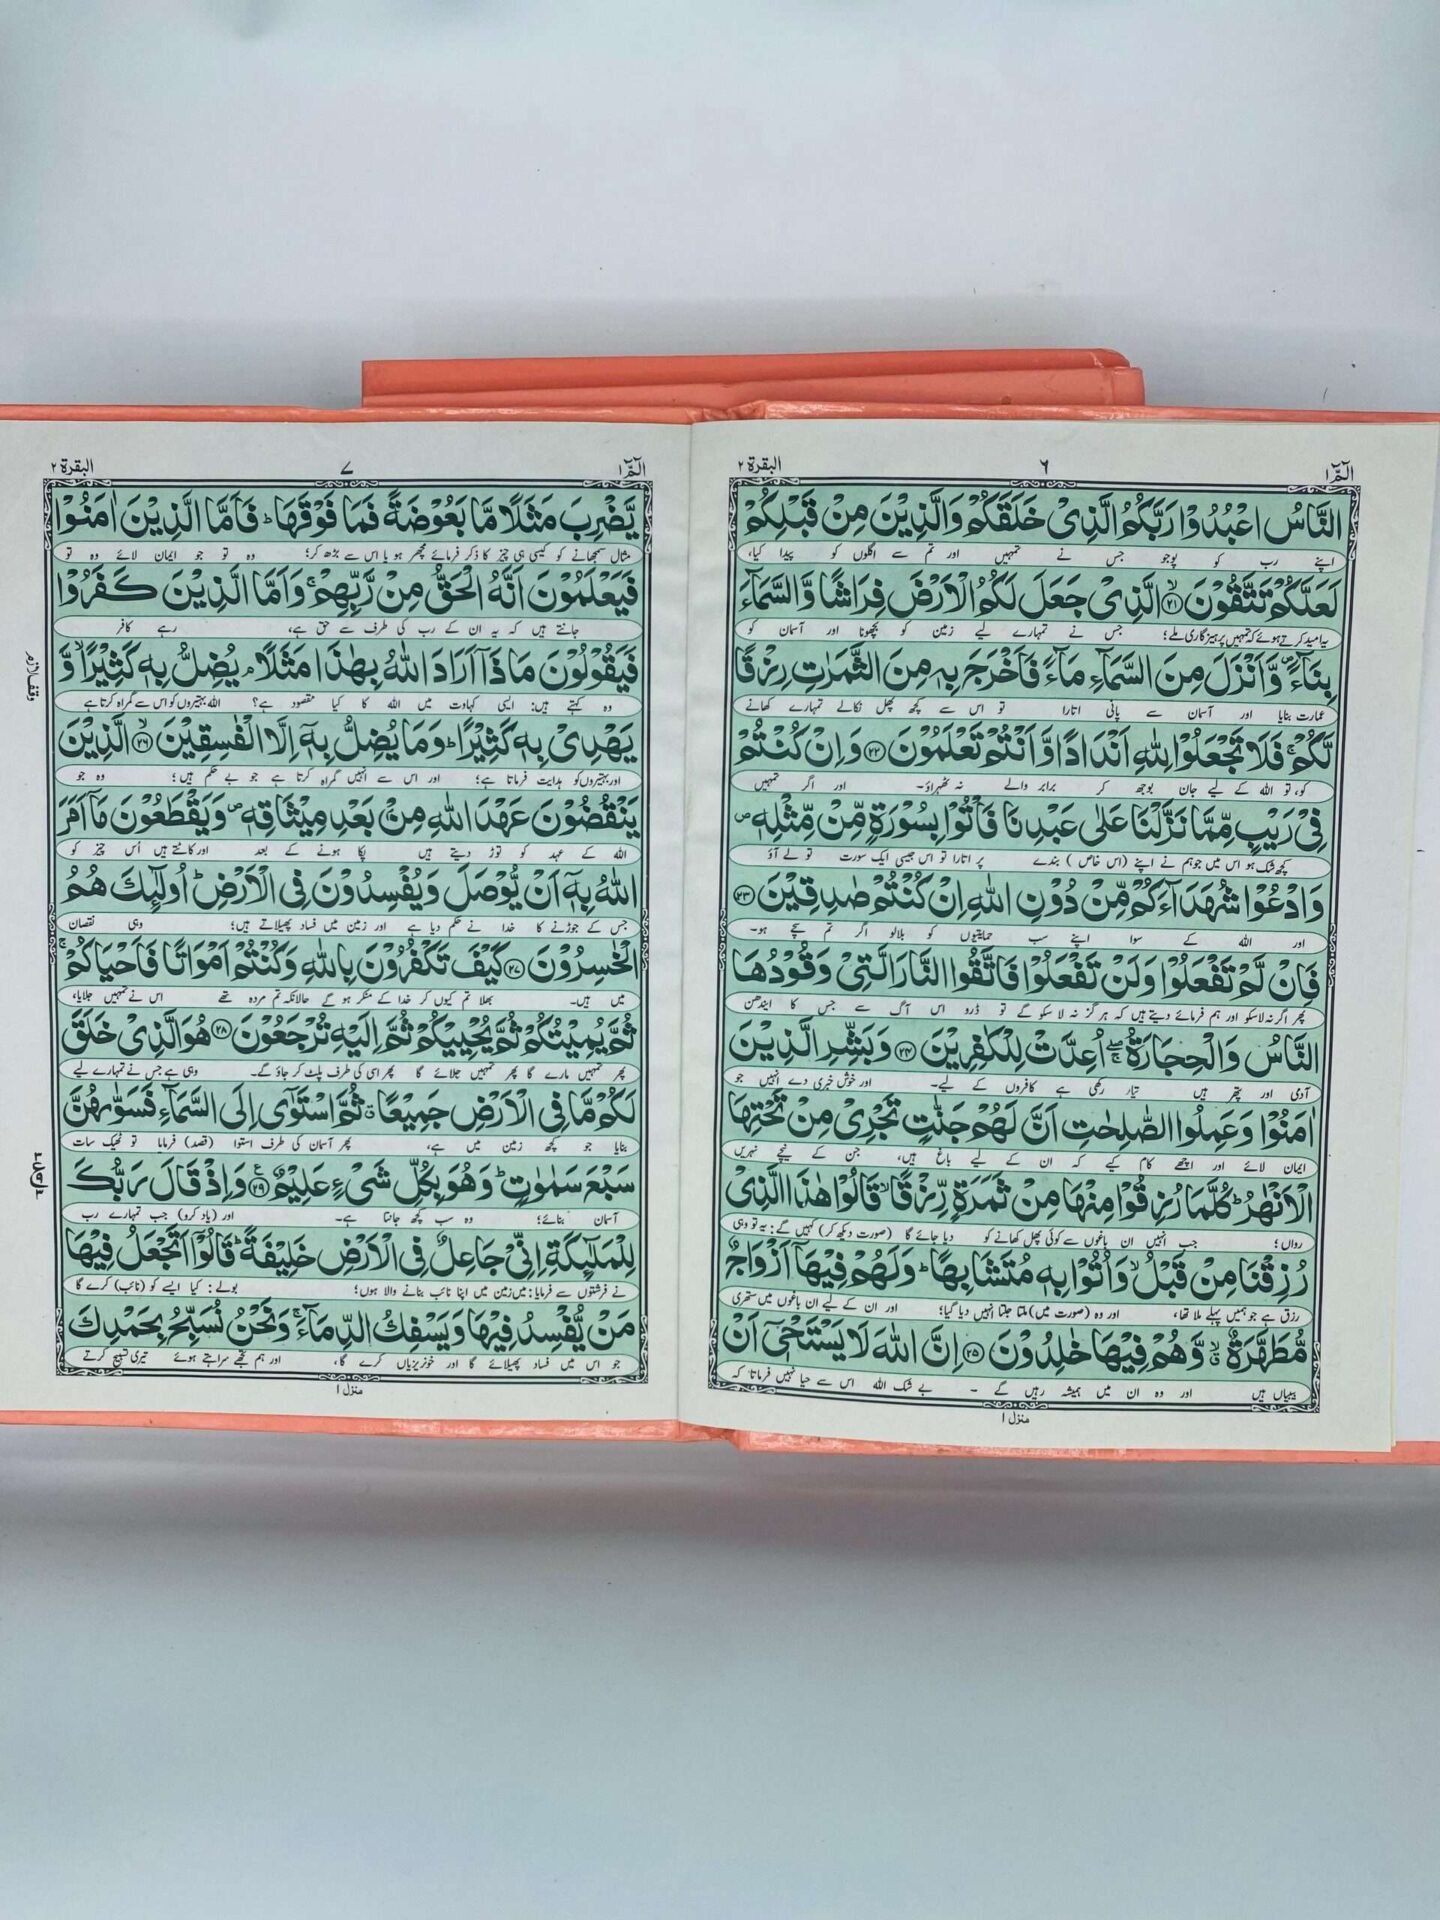 الٓمّٓ ١ ٦ البقرة ٢
النَّاسُ اعْبُدُوْا رَبَّكُمُ الَّذِیْ خَلَقَكُمْ وَالَّذِیْنَ مِنْ قَبْلِكُمْ
اپنے رب کو پوجو جس نے تمہیں اور تم سے اگلوں کو پیدا کیا،
لَعَلَّكُمْ تَتَّقُوْنَ ۙ﴿٢١﴾ الَّذِیْ جَعَلَ لَكُمُ الْاَرْضَ فِرَاشًا وَّالسَّمَآءَ
یہ امید کرتے ہوئے کہ تمہیں پرہیزگاری ملے؛ جس نے تمہارے لیے زمین کو بچھونا اور آسمان کو
بِنَآءً ۪ وَّاَنْزَلَ مِنَ السَّمَآءِ مَآءً فَاَخْرَجَ بِهٖ مِنَ الثَّمَرٰتِ رِزْقًا
عمارت بنایا اور آسمان سے پانی اتارا تو اس سے کچھ پھل نکالے تمہارے کھانے
لَّكُمْ ۚ فَلَا تَجْعَلُوْا لِلّٰهِ اَنْدَادًا وَّاَنْتُمْ تَعْلَمُوْنَ ﴿٢٢﴾ وَاِنْ كُنْتُمْ
کو، تو اللہ کے لیے جان بوجھ کر برابر والے نہ ٹھہراؤ۔ اور اگر تمہیں
فِیْ رَیْبٍ مِّمَّا نَزَّلْنَا عَلٰی عَبْدِنَا فَاْتُوْا بِسُوْرَةٍ مِّنْ مِّثْلِهٖ ۪
کچھ شک ہو اس میں جو ہم نے اپنے (اس خاص) بندے پر اتارا تو اس جیسی ایک سورت تو لے آؤ
وَادْعُوْا شُهَدَآءَكُمْ مِّنْ دُوْنِ اللّٰهِ اِنْ كُنْتُمْ صٰدِقِیْنَ ﴿٢٣﴾
اور اللہ کے سوا اپنے سب حمایتیوں کو بلالو اگر تم سچے ہو۔
فَاِنْ لَّمْ تَفْعَلُوْا وَلَنْ تَفْعَلُوْا فَاتَّقُوا النَّارَ الَّتِیْ وَقُوْدُهَا
پھر اگر نہ لاسکو اور ہم فرمائے دیتے ہیں کہ ہرگز نہ لا سکو گے تو ڈرو اس آگ سے جس کا ایندھن
النَّاسُ وَالْحِجَارَةُ ۖۚ اُعِدَّتْ لِلْكٰفِرِیْنَ ﴿٢٤﴾ وَبَشِّرِ الَّذِیْنَ
آدمی اور پتھر ہیں تیار رکھی ہے کافروں کے لیے۔ اور خوش خبری دے انہیں جو
اٰمَنُوْا وَعَمِلُوا الصّٰلِحٰتِ اَنَّ لَهُمْ جَنّٰتٍ تَجْرِیْ مِنْ تَحْتِهَا
ایمان لائے اور اچھے کام کیے کہ ان کے لیے باغ ہیں، جن کے نیچے نہریں
الْاَنْهٰرُ ؕ كُلَّمَا رُزِقُوْا مِنْهَا مِنْ ثَمَرَةٍ رِّزْقًا ۙ قَالُوْا هٰذَا الَّذِیْ
رواں؛ جب انہیں ان باغوں سے کوئی پھل کھانے کو دیا جائے گا (صورت دیکھ کر) کہیں گے: یہ تو وہی
رُزِقْنَا مِنْ قَبْلُ ۙ وَاُتُوْا بِهٖ مُتَشَابِهًا ؕ وَلَهُمْ فِیْهَاۤ اَزْوَاجٌ
رزق ہے جو ہمیں پہلے ملا تھا، اور وہ (صورت میں) ملتا جلتا انہیں دیا گیا؛ اور ان کے لیے ان باغوں میں ستھری
مُّطَهَّرَةٌ ۙ وَّهُمْ فِیْهَا خٰلِدُوْنَ ﴿٢٥﴾ اِنَّ اللّٰهَ لَا یَسْتَحْیٖۤ اَنْ
بیبیاں ہیں اور وہ ان میں ہمیشہ رہیں گے۔ بے شک اللہ اس سے حیا نہیں فرماتا کہ
منزل ١
الٓمّٓ ١ ٧ البقرة ٢
یَّضْرِبَ مَثَلًا مَّا بَعُوْضَةً فَمَا فَوْقَهَا ؕ فَاَمَّا الَّذِیْنَ اٰمَنُوْا
مثال سمجھانے کو کیسی ہی چیز کا ذکر فرمائے مچھر ہو یا اس سے بڑھ کر؛ وہ تو جو ایمان لائے وہ تو
فَیَعْلَمُوْنَ اَنَّهُ الْحَقُّ مِنْ رَّبِّهِمْ ۚ وَاَمَّا الَّذِیْنَ كَفَرُوْا
جانتے ہیں کہ یہ ان کے رب کی طرف سے حق ہے، رہے کافر
فَیَقُوْلُوْنَ مَاذَاۤ اَرَادَ اللّٰهُ بِهٰذَا مَثَلًا ۘ یُضِلُّ بِهٖ كَثِیْرًا ۙ وَّ
وہ کہتے ہیں: ایسی کہاوت میں اللہ کا کیا مقصود ہے؟ اللہ بہتیروں کو اس سے گمراہ کرتا ہے
وقف لازم
یَهْدِیْ بِهٖ كَثِیْرًا ؕ وَمَا یُضِلُّ بِهٖۤ اِلَّا الْفٰسِقِیْنَ ۙ﴿٢٦﴾ الَّذِیْنَ
اور بہتیروں کو ہدایت فرماتا ہے؛ اور اس سے انہیں گمراہ کرتا ہے جو بے حکم ہیں؛ وہ جو
یَنْقُضُوْنَ عَهْدَ اللّٰهِ مِنْۢ بَعْدِ مِیْثَاقِهٖ ۪ وَیَقْطَعُوْنَ مَاۤ اَمَرَ
اللہ کے عہد کو توڑ دیتے ہیں پکا ہونے کے بعد اور کاٹتے ہیں اُس چیز کو
اللّٰهُ بِهٖۤ اَنْ یُّوْصَلَ وَیُفْسِدُوْنَ فِی الْاَرْضِ ؕ اُولٰٓىِٕكَ هُمُ
جس کے جوڑنے کا خدا نے حکم دیا ہے اور زمین میں فساد پھیلاتے ہیں؛ وہی نقصان
الْخٰسِرُوْنَ ﴿٢٧﴾ كَیْفَ تَكْفُرُوْنَ بِاللّٰهِ وَكُنْتُمْ اَمْوَاتًا فَاَحْیَاكُمْ ۚ
میں ہیں۔ بھلا تم کیوں کر خدا کے منکر ہو گے حالانکہ تم مردہ تھے اس نے تمہیں جِلایا،
ثُمَّ یُمِیْتُكُمْ ثُمَّ یُحْیِیْكُمْ ثُمَّ اِلَیْهِ تُرْجَعُوْنَ ﴿٢٨﴾ هُوَ الَّذِیْ خَلَقَ
پھر تمہیں مارے گا پھر تمہیں جِلائے گا پھر اسی کی طرف پلٹ کر جاؤ گے۔ وہی ہے جس نے تمہارے لیے
لَكُمْ مَّا فِی الْاَرْضِ جَمِیْعًا ٭ ثُمَّ اسْتَوٰۤی اِلَی السَّمَآءِ فَسَوّٰىهُنَّ
بنایا جو کچھ زمین میں ہے، پھر آسمان کی طرف استوا (قصد) فرمایا تو ٹھیک سات
سَبْعَ سَمٰوٰتٍ ؕ وَهُوَ بِكُلِّ شَیْءٍ عَلِیْمٌ ﴿٢٩﴾ وَاِذْ قَالَ رَبُّكَ
آسمان بنائے؛ وہ سب کچھ جانتا ہے۔ اور (یاد کرو) جب تمہارے رب
لِلْمَلٰٓىِٕكَةِ اِنِّیْ جَاعِلٌ فِی الْاَرْضِ خَلِیْفَةً ؕ قَالُوْۤا اَتَجْعَلُ فِیْهَا
نے فرشتوں سے فرمایا: میں زمین میں اپنا نائب بنانے والا ہوں؛ بولے: کیا ایسے کو (نائب) کرے گا
مَنْ یُّفْسِدُ فِیْهَا وَیَسْفِكُ الدِّمَآءَ ۚ وَنَحْنُ نُسَبِّحُ بِحَمْدِكَ
جو اس میں فساد پھیلائے گا اور خونریزیاں کرے گا، اور ہم تجھے سراہتے ہوئے تیری تسبیح کرتے
منزل ١